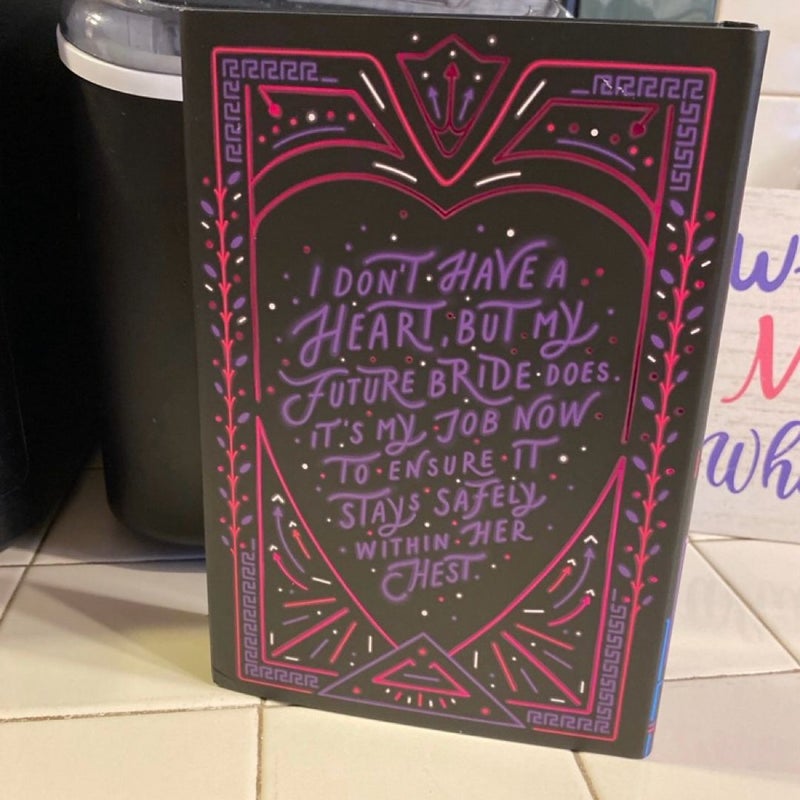 I DON'T HAVE A
HEART, BUT MY
FUTURE BRIDE DOES.
IT'S MY JOB NOW
TO ENSURE IT
STAYS SAFELY
WITHIN HER
CHEST.